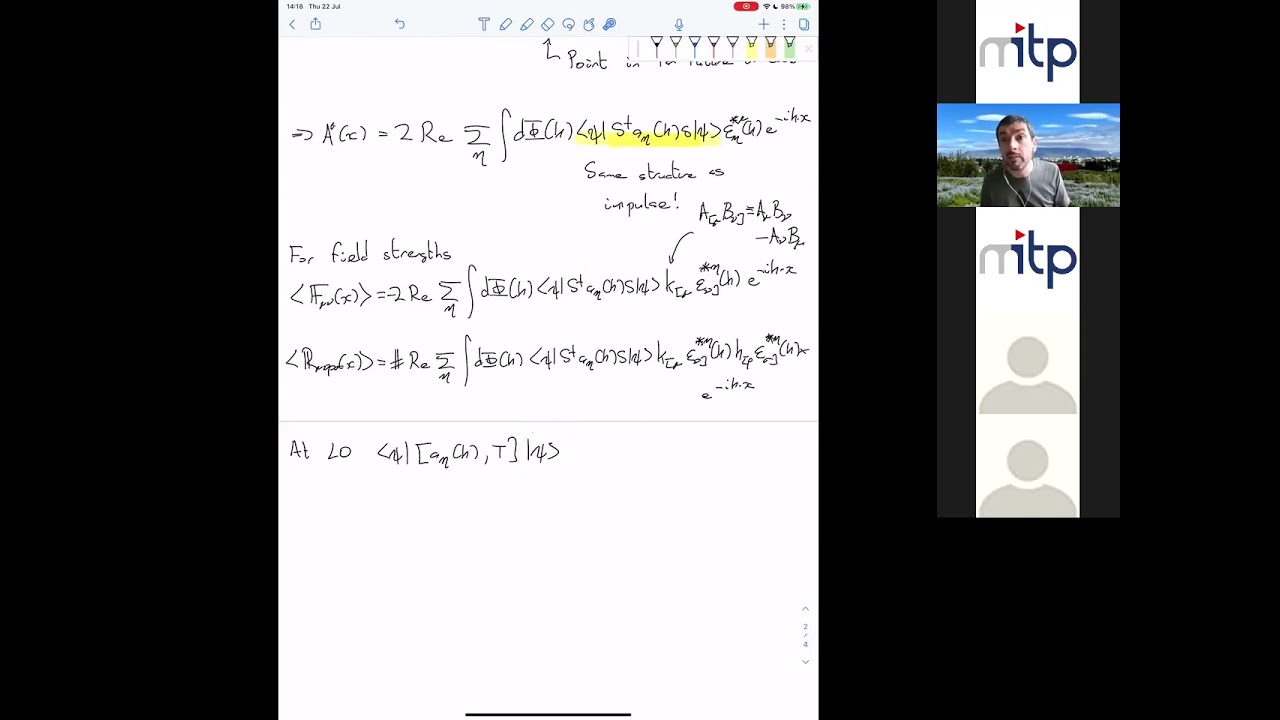 14:18 Thu 22 Jul
98%
Point in
⇒ Aᵘ(x) = 2 Re Σ_η ∫ dΦ(k) <ψ| S† a_η(k) S |ψ> ε_η^{*μ}(k) e^{-ik·x}
Same structure as
impulse!
A_[μ B_ν] = A_μ B_ν
- A_ν B_μ
For field strengths
<F_μν(x)> = -2 Re Σ_η ∫ dΦ(k) <ψ| S† a_η(k) S |ψ> k_[μ ε_ν]^{*η}(k) e^{-ik·x}
<R_μνρσ(x)> = # Re Σ_η ∫ dΦ(k) <ψ| S† a_η(k) S |ψ> k_[μ ε_ν]^{*η}(k) k_[ρ ε_σ]^{*η}(k) ×
e^{-ik·x}
At LO <ψ| [a_η(k), T] |ψ>
2
/
4
mitp
mitp